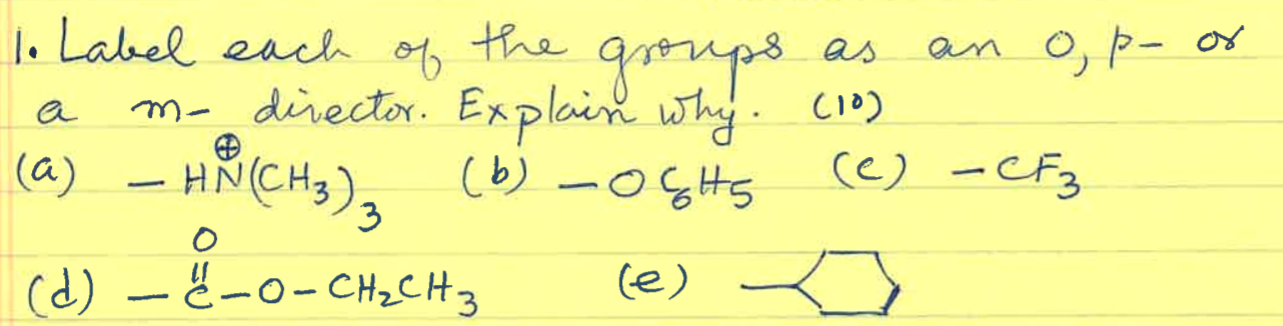 1. Label each of the groups as an o, p- or
a m- director. Explain why. (10)
(a) –HN⊕(CH₃)₃ (b) –OC₆H₅ (c) –CF₃
(d) –C(=O)–O–CH₂CH₃ (e)